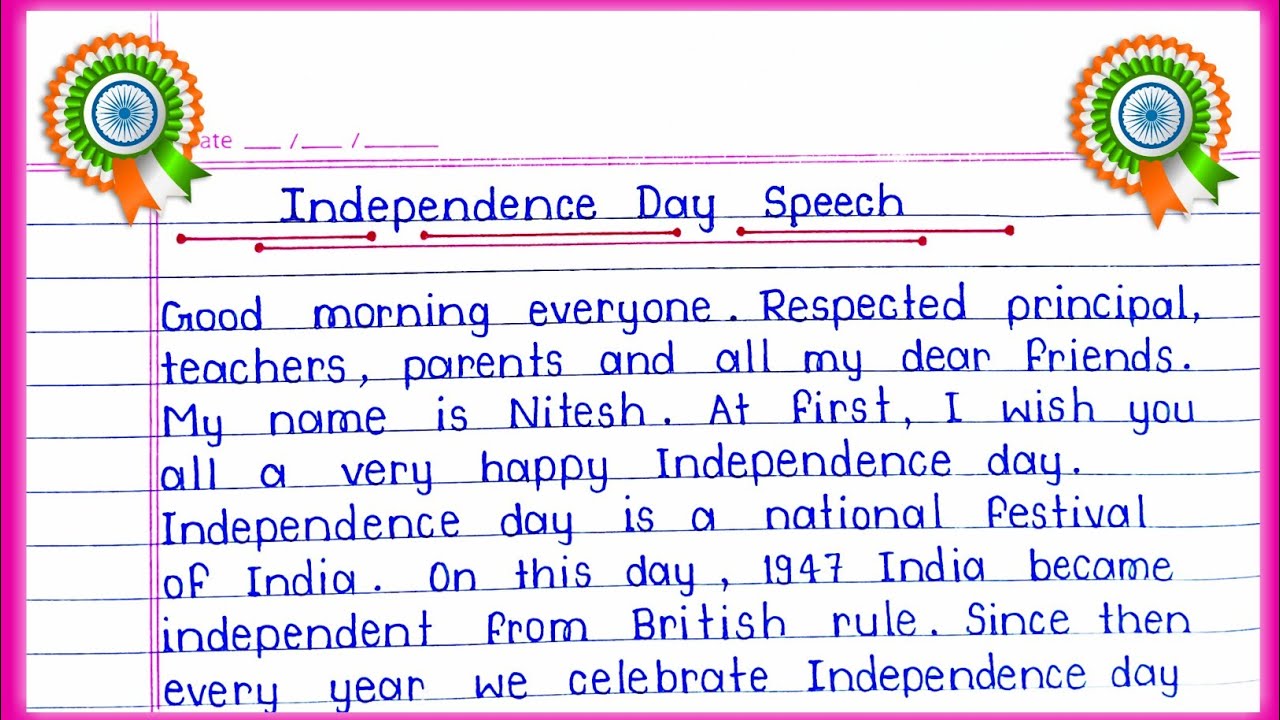 ate __ /__ /____
Independence Day Speech
Good morning everyone. Respected principal,
teachers, parents and all my dear friends.
My name is Nitesh. At first, I wish you
all a very happy Independence day.
Independence day is a national festival
of India. On this day, 1947 India became
independent from British rule. Since then
every year we celebrate Independence day